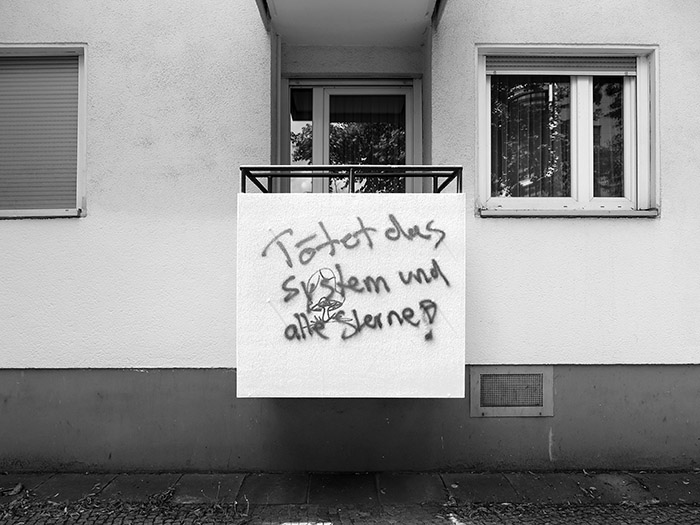 Tötet das
system und
alle Sterne!